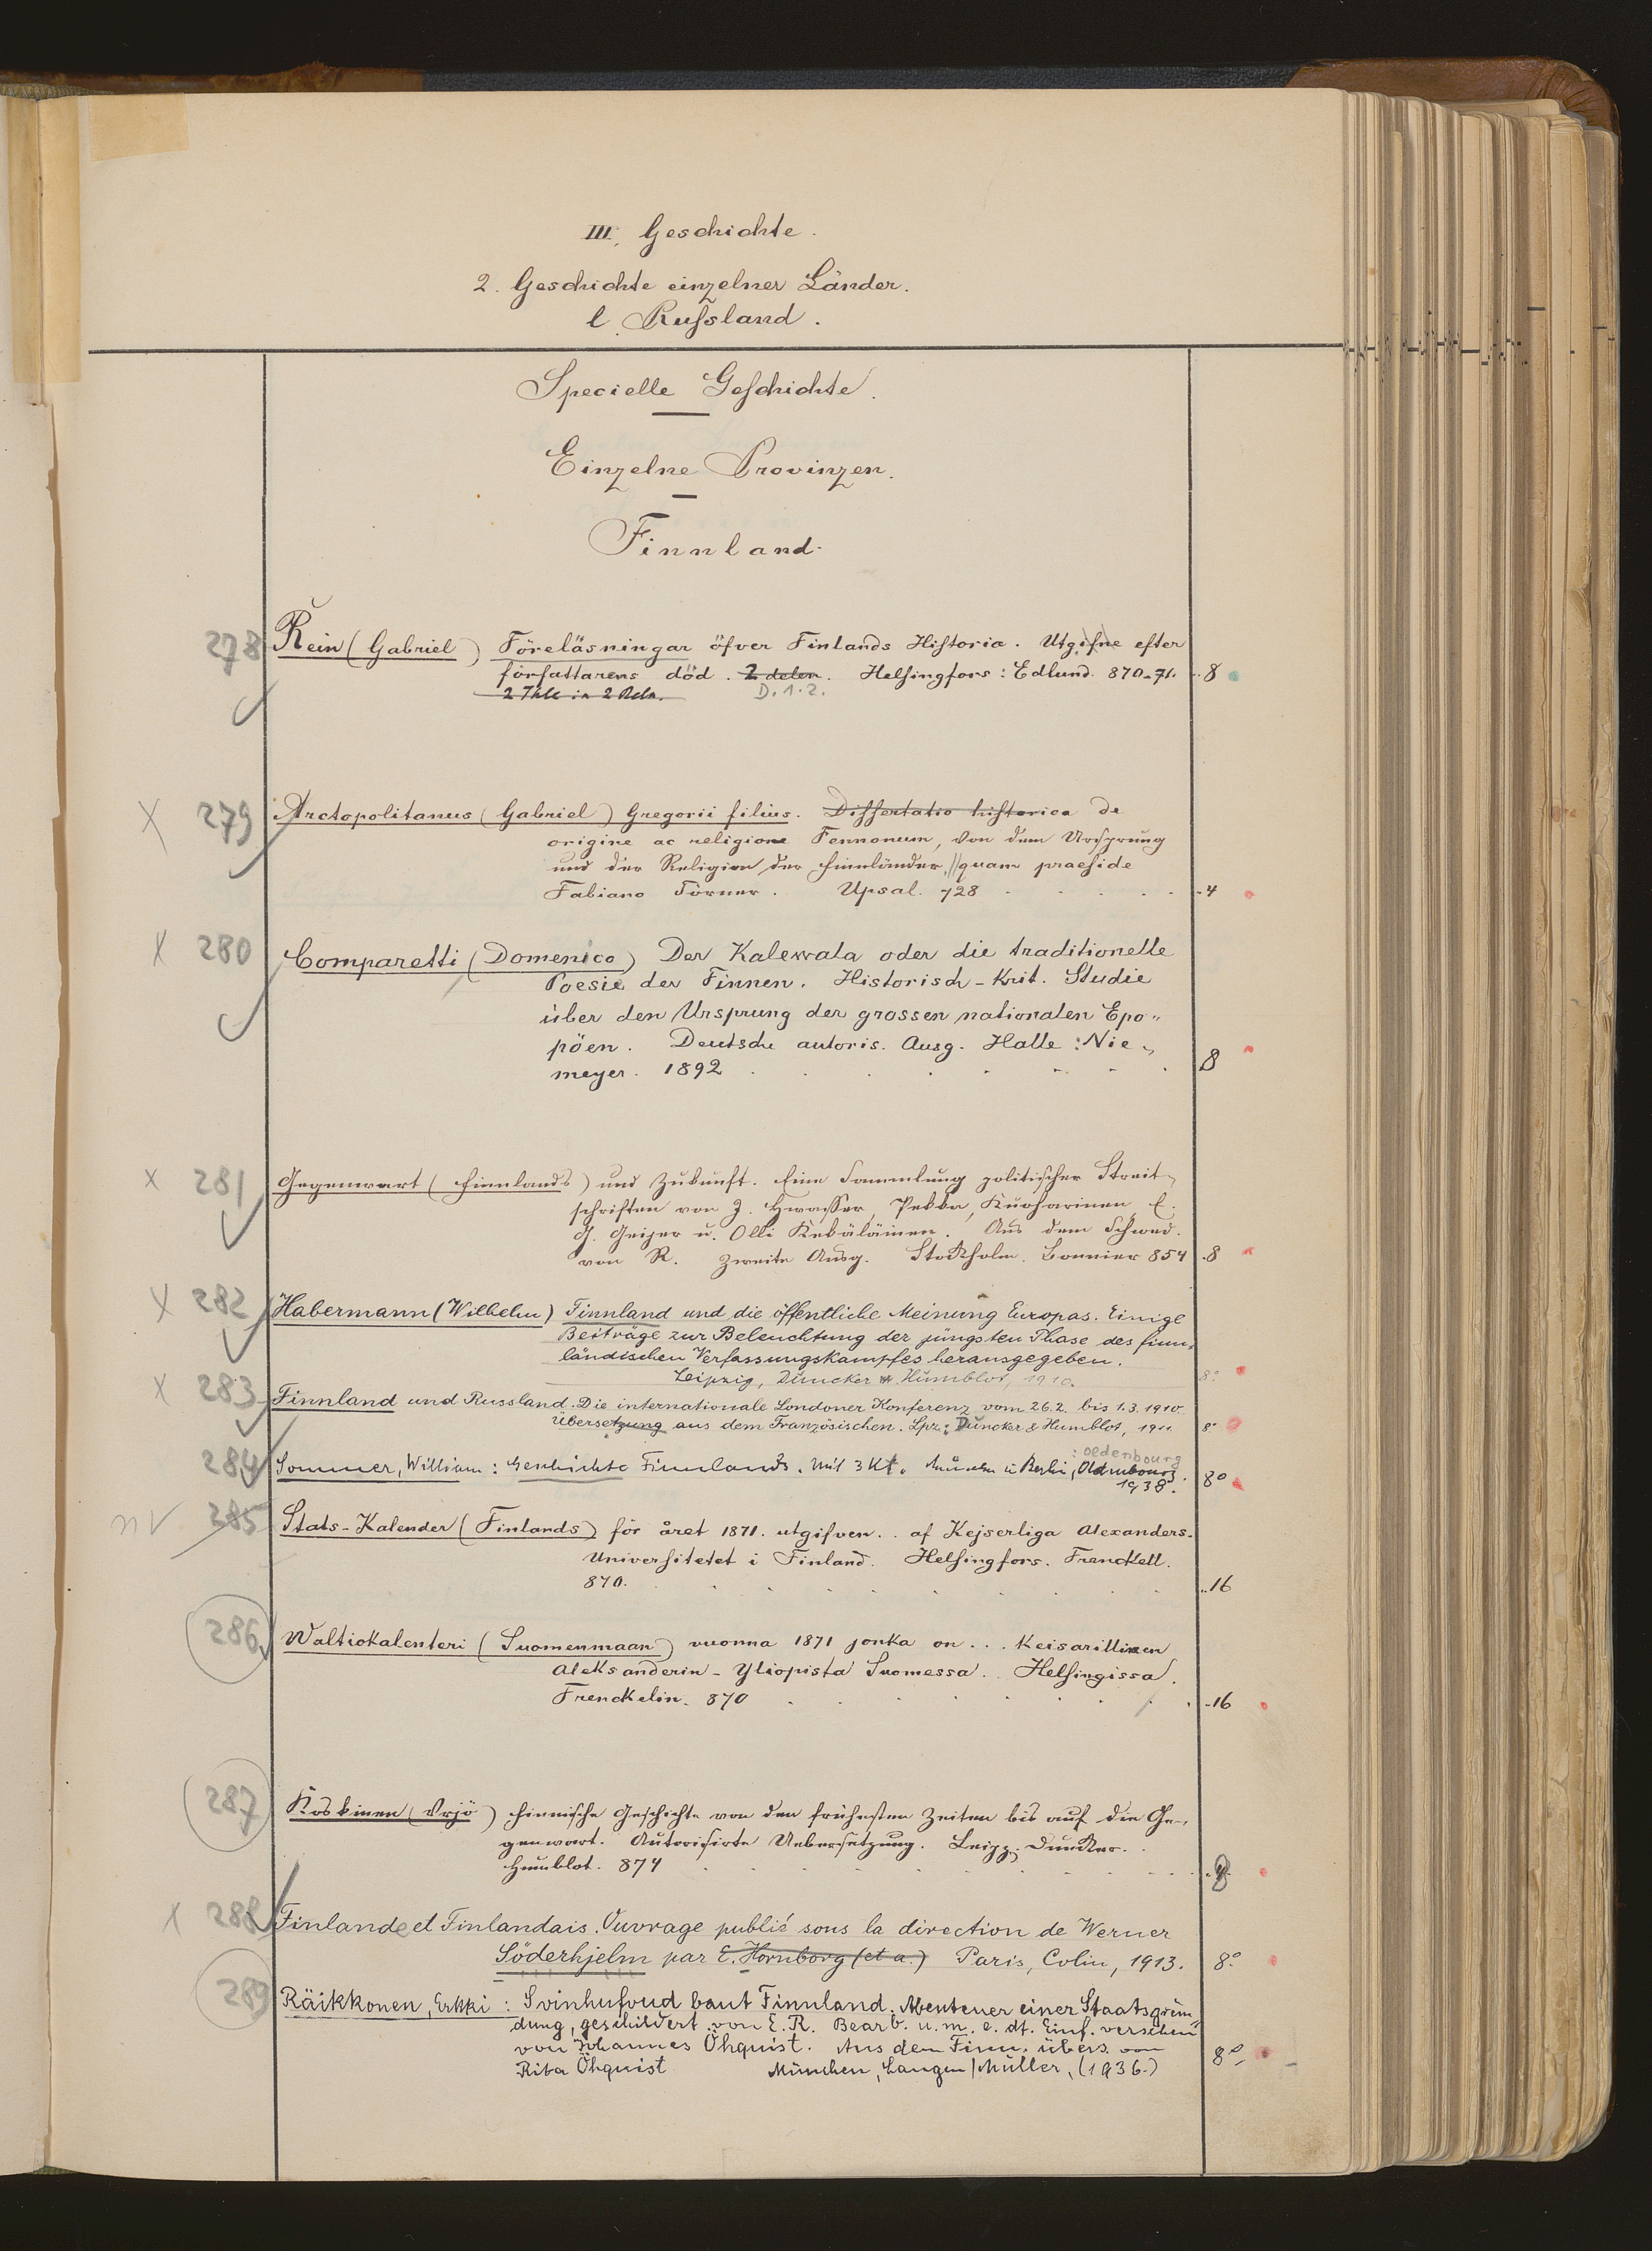 III. Geschichte.
2. Geschichte einzelner Länder.
l. Russland.
Specielle Geschichte.
Einzelne Provinzen.
Finnland.
278 Rein (Gabriel) Föreläsningar öfver Finlands Historia. Utgifne efter
författarens död. 2 delen. Helsingfors: Edlund. 870-71. 8
2 Thle in 2 Bdn. D.1.2.
X 279 Arctopolitanus (Gabriel) Gregorii filius. Dissertatio historica de
origine ac religione Fennonum, von dem Ursprung
und der Religion der Finnländer, // quam praeside
Fabiano Törner. Upsal. 728 4
X 280 Comparetti (Domenico) Der Kalewala oder die traditionelle
Poesie der Finnen. Historisch-Krit. Studie
über den Ursprung der grossen nationalen Epo-
pöen. Deutsche autoris. Ausg. Halle: Nie-
meyer. 1892 8
X 281 Gegenwart (Finnlands) und Zukunft. Eine Sammlung politischer Streit-
schriften von J. Hwasser, Pekka, Kuoharinen, E.
G. Geijer u. Olli Kekäläinen. Aus dem Schwed.
von R. Zweite Ausg. Stockholm. Bonnier 854 8
X 282 Habermann (Wilhelm) Finnland und die öffentliche Meinung Europas. Einige
Beiträge zur Beleuchtung der jüngsten Phase des finn-
ländischen Verfassungskampfes herausgegeben.
Leipzig, Duncker & Humblot, 1910. 8°
X 283 Finnland und Russland. Die internationale Londoner Konferenz vom 26.2. bis 1.3.1910.
Übersetzung aus dem Französischen. Lpz.: Duncker & Humblot, 1911. 8°
: Oldenbourg
284 Sommer, William: Geschichte Finnlands. Mit 3 Kt. München u. Berlin, Oldenbourg.
1938. 8°
nv 285 Stats-Kalender (Finlands) för året 1871. utgifven.. af Kejserliga Alexanders-
Universitetet i Finland. Helsingfors. Frenckell.
870. 16
286 Waltiokalenteri (Suomenmaan) vuonna 1871 jonka on... Keisarillinen
Aleksanderin-Yliopista Suomessa. Helsingissa.
Frenckelin. 870 16
287 Koskinen (Yrjö) Finnische Geschichte von den frühesten Zeiten bis auf die Ge-
genwart. Autorisirte Uebersetzung. Leipz. Duncker.
Humblot. 874 8
X 288 Finlande et Finlandais. Ouvrage publié sous la direction de Werner
Söderhjelm par E. Hornborg (et a.) Paris, Colin, 1913. 8°
289 Räikkonen, Erkki: Svinhufvud baut Finnland. Abenteuer einer Staatsgrün-
dung, geschildert von E. R. Bearb. u. m. e. dt. Einf. versehen
von Johannes Öhquist. Aus dem Finn. übers. von
Rita Öhquist München, Langen/Müller, (1936.) 8°